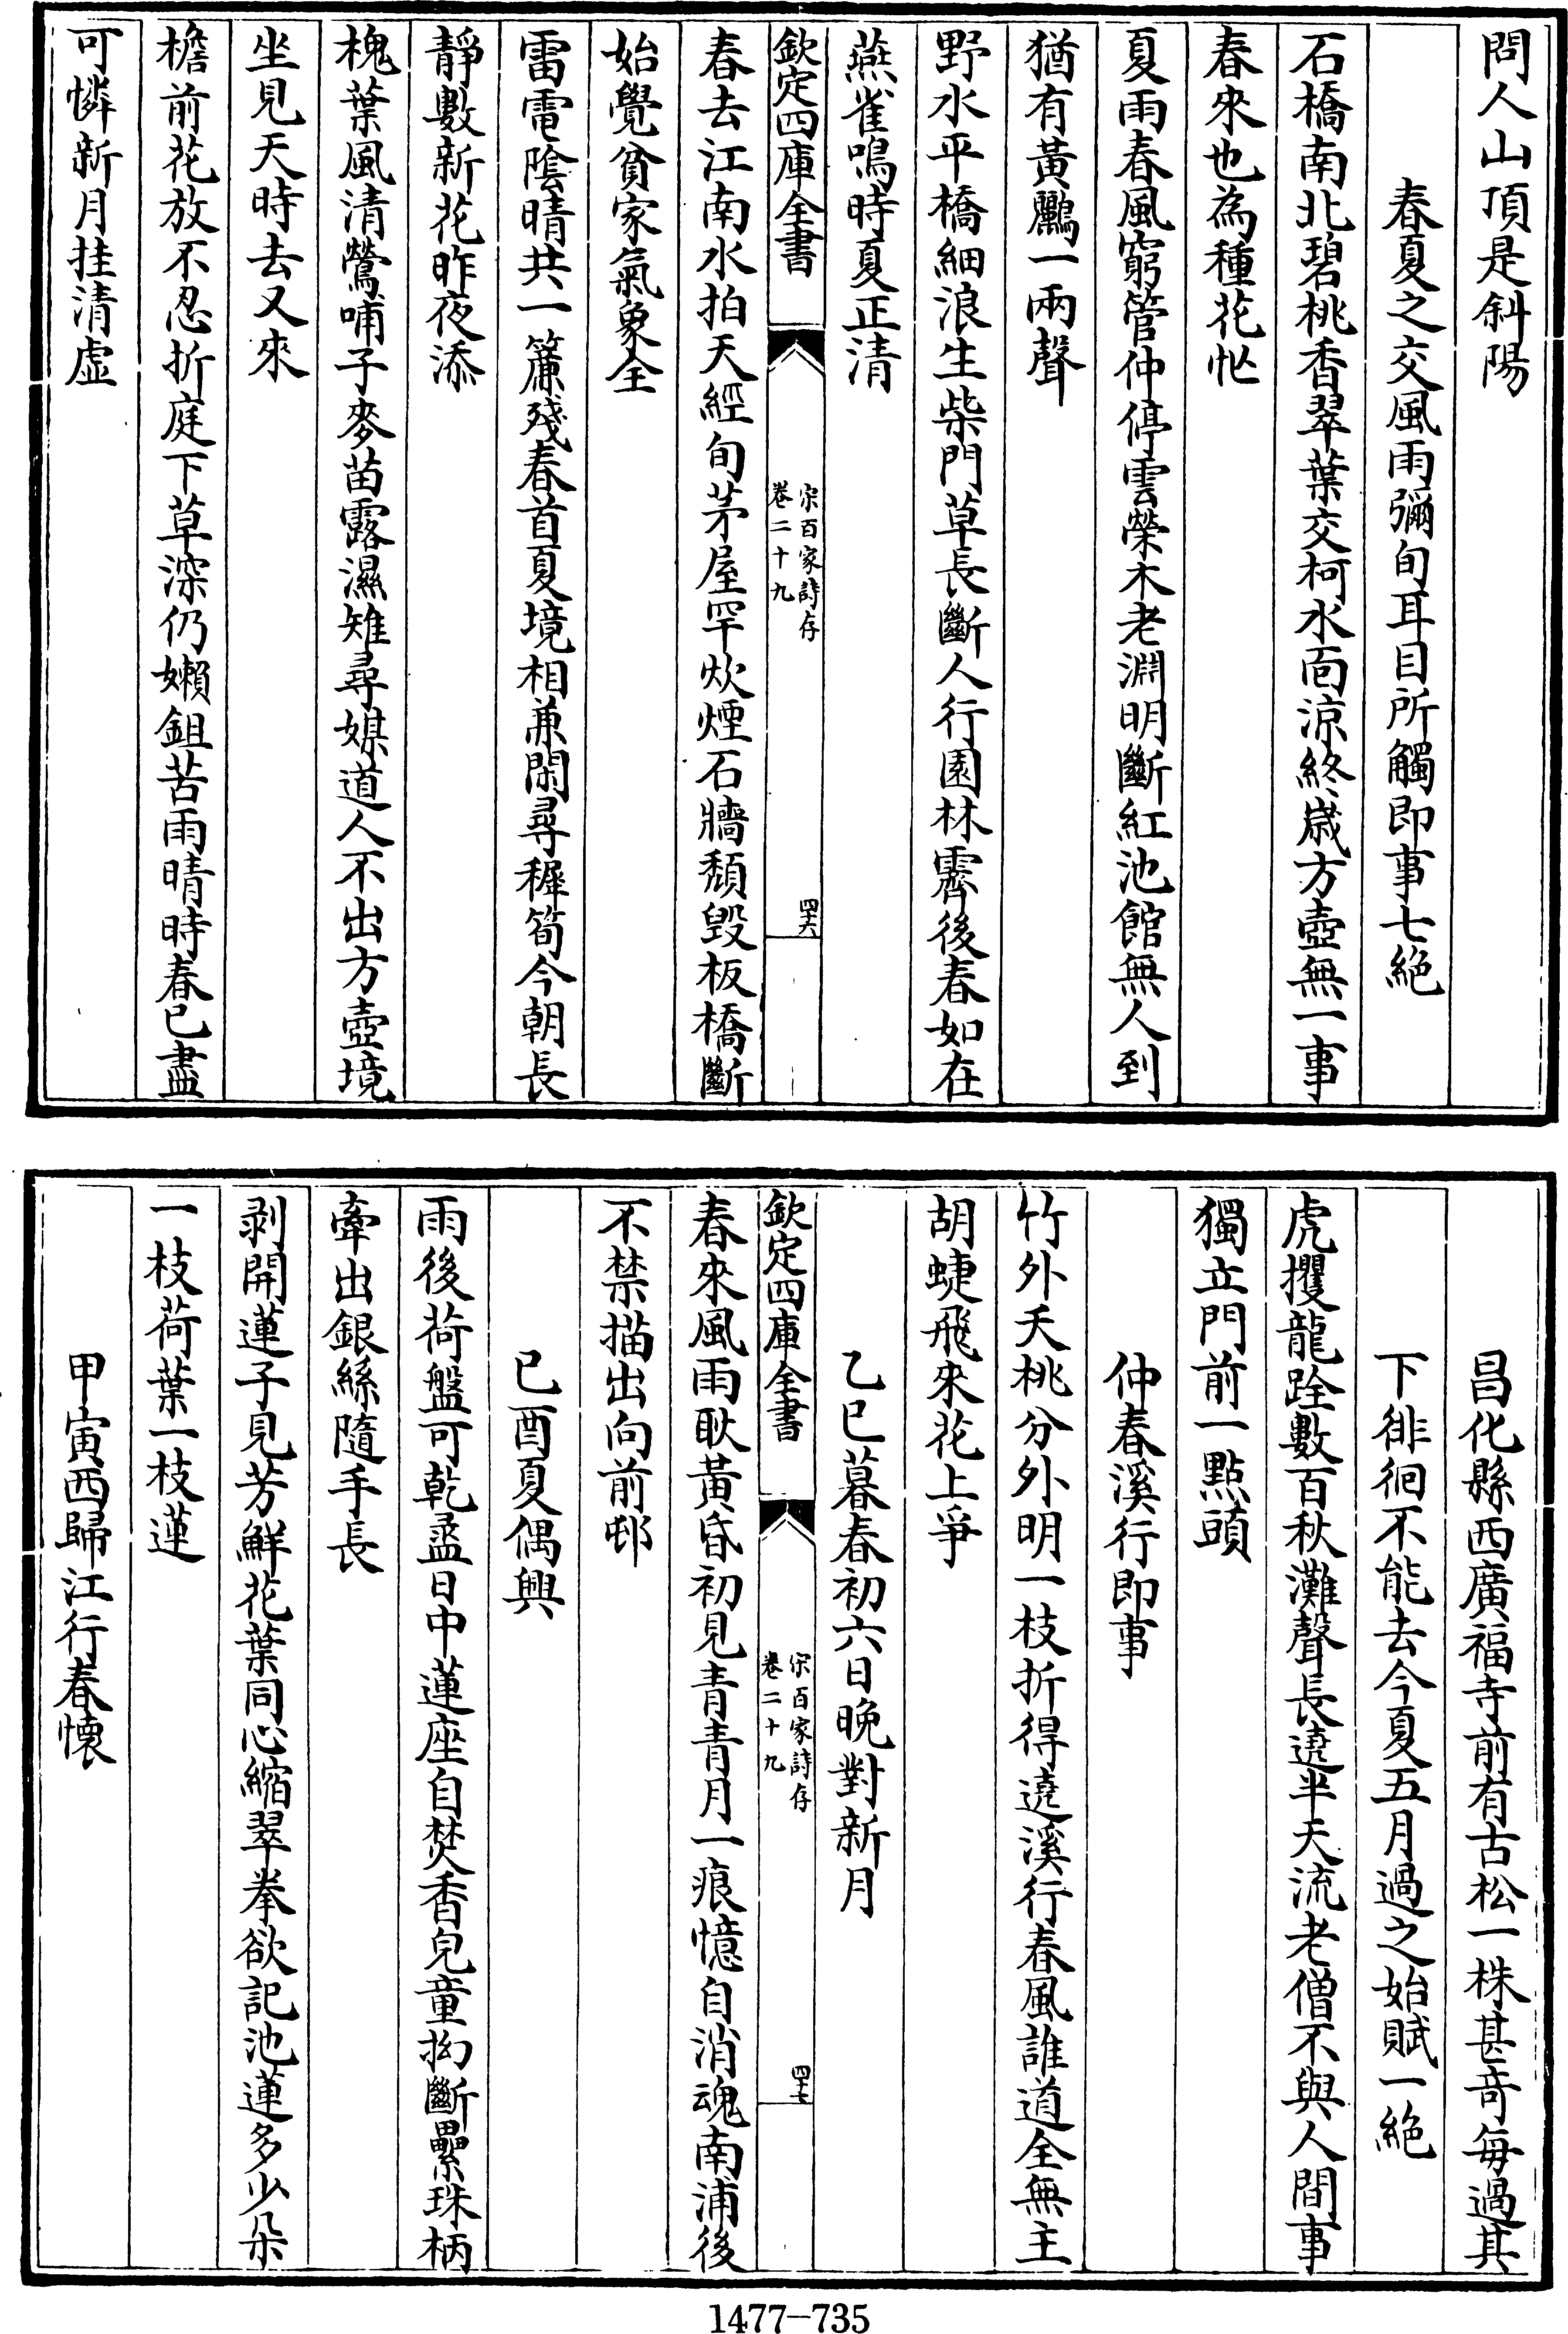 問人山頂是斜陽
春夏之交風雨彌旬耳目所觸即事七絶
石橋南北碧桃香翠葉交柯水面涼終歲方壺無一事
春來也為種花忙
夏雨春風窮管仲停雲榮木老淵明斷紅池館無人到
猶有黃鸝一兩聲
野水平橋細浪生柴門草長斷人行園林霽後春如在
燕雀鳴時夏正清
欽定四庫全書
宋百家詩存
卷二十九
四十六
春去江南水拍天經旬茅屋罕炊煙石牆頹毀板橋斷
始覺貧家氣象全
雷電陰晴共一簾殘春首夏境相兼閑尋穉筍今朝長
靜數新花昨夜添
槐葉風清鶯哺子麥苗露濕雉尋媒道人不出方壺境
坐見天時去又來
檐前花放不忍折庭下草深仍嬾鉏苦雨晴時春已盡
可憐新月挂清虛
昌化縣西廣福寺前有古松一株甚奇每過其
下徘徊不能去今夏五月過之始賦一絶
虎攫龍跧數百秋灘聲長遶半天流老僧不與人間事
獨立門前一點頭
仲春溪行即事
竹外夭桃分外明一枝折得遶溪行春風誰道全無主
胡蜨飛來花上爭
乙巳暮春初六日晚對新月
欽定四庫全書
宋百家詩存
卷二十九
四十七
春來風雨耿黃昏初見青青月一痕憶自消魂南浦後
不禁描出向前邨
已酉夏偶興
雨後荷盤可乾盝日中蓮座自焚香兒童拗斷纍珠柄
牽出銀絲隨手長
剥開蓮子見芳鮮花葉同心縮翠拳欲記池蓮多少朵
一枝荷葉一枝蓮
甲寅西歸江行春懷
1477-735